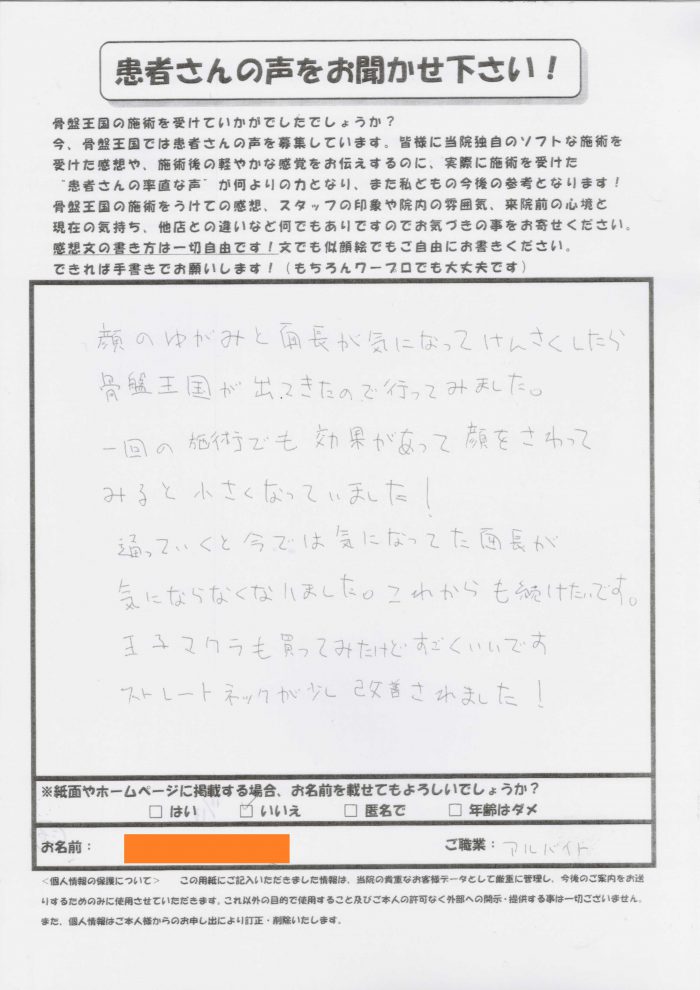 患者さんの声をお聞かせ下さい！
骨盤王国の施術を受けていかがでしたでしょうか？
今、骨盤王国では患者さんの声を募集しています。皆様に当院独自のソフトな施術を
受けた感想や、施術後の軽やかな感覚をお伝えするのに、実際に施術を受けた
“患者さんの率直な声”が何よりの力となり、また私どもの今後の参考となります！
骨盤王国の施術をうけての感想、スタッフの印象や院内の雰囲気、来院前の心境と
現在の気持ち、他店との違いなど何でもありですのでお気づきの事をお寄せください。
感想文の書き方は一切自由です！文でも似顔絵でもご自由にお書きください。
できれば手書きでお願いします！（もちろんワープロでも大丈夫です）
顔のゆがみと面長が気になってけんさくしたら
骨盤王国が出てきたので行ってみました。
一回の施術でも効果があって顔をさわって
みると小さくなっていました！
通っていくと今では気になってた面長が
気にならなくなりました。これからも続けたいです。
王子マクラも買ってみたけどすごくいいです
ストレートネックが少し改善されました！
※紙面やホームページに掲載する場合、お名前を載せてもよろしいでしょうか？
□ はい ☑ いいえ □ 匿名で □ 年齢はダメ
お名前： ご職業：アルバイト
＜個人情報の保護について＞ この用紙にご記入いただきました情報は、当院の貴重なお客様データとして厳重に管理し、今後のご案内をお送
りするためのみに使用させていただきます。これ以外の目的で使用すること及びご本人の許可なく外部への開示・提供する事は一切ございません。
また、個人情報はご本人様からのお申し出により訂正・削除いたします。